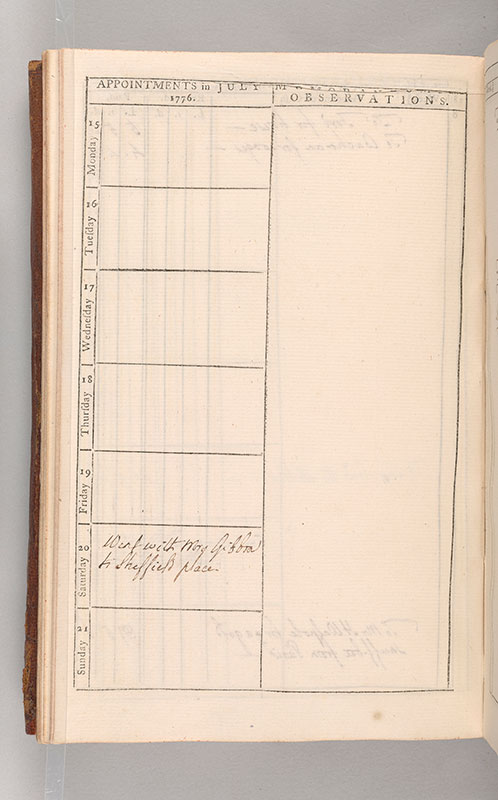 APPOINTMENTS in JULY
1776.
MEMORANDUMS
OBSERVATIONS.
15
Monday
16
Tueſday
17
Wedneſday
18
Thurſday
19
Friday
20
Saturday
Went with Mrs Gibbon
to Sheffield place
21
Sunday